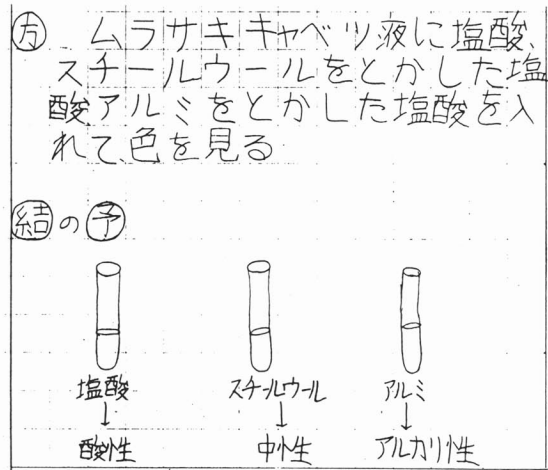 方 ムラサキキャベツ液に塩酸、
スチールウールをとかした塩
酸、アルミをとかした塩酸を入
れて、色を見る
結の予
塩酸 スチールウール アルミ
↓ ↓ ↓
酸性 中性 アルカリ性